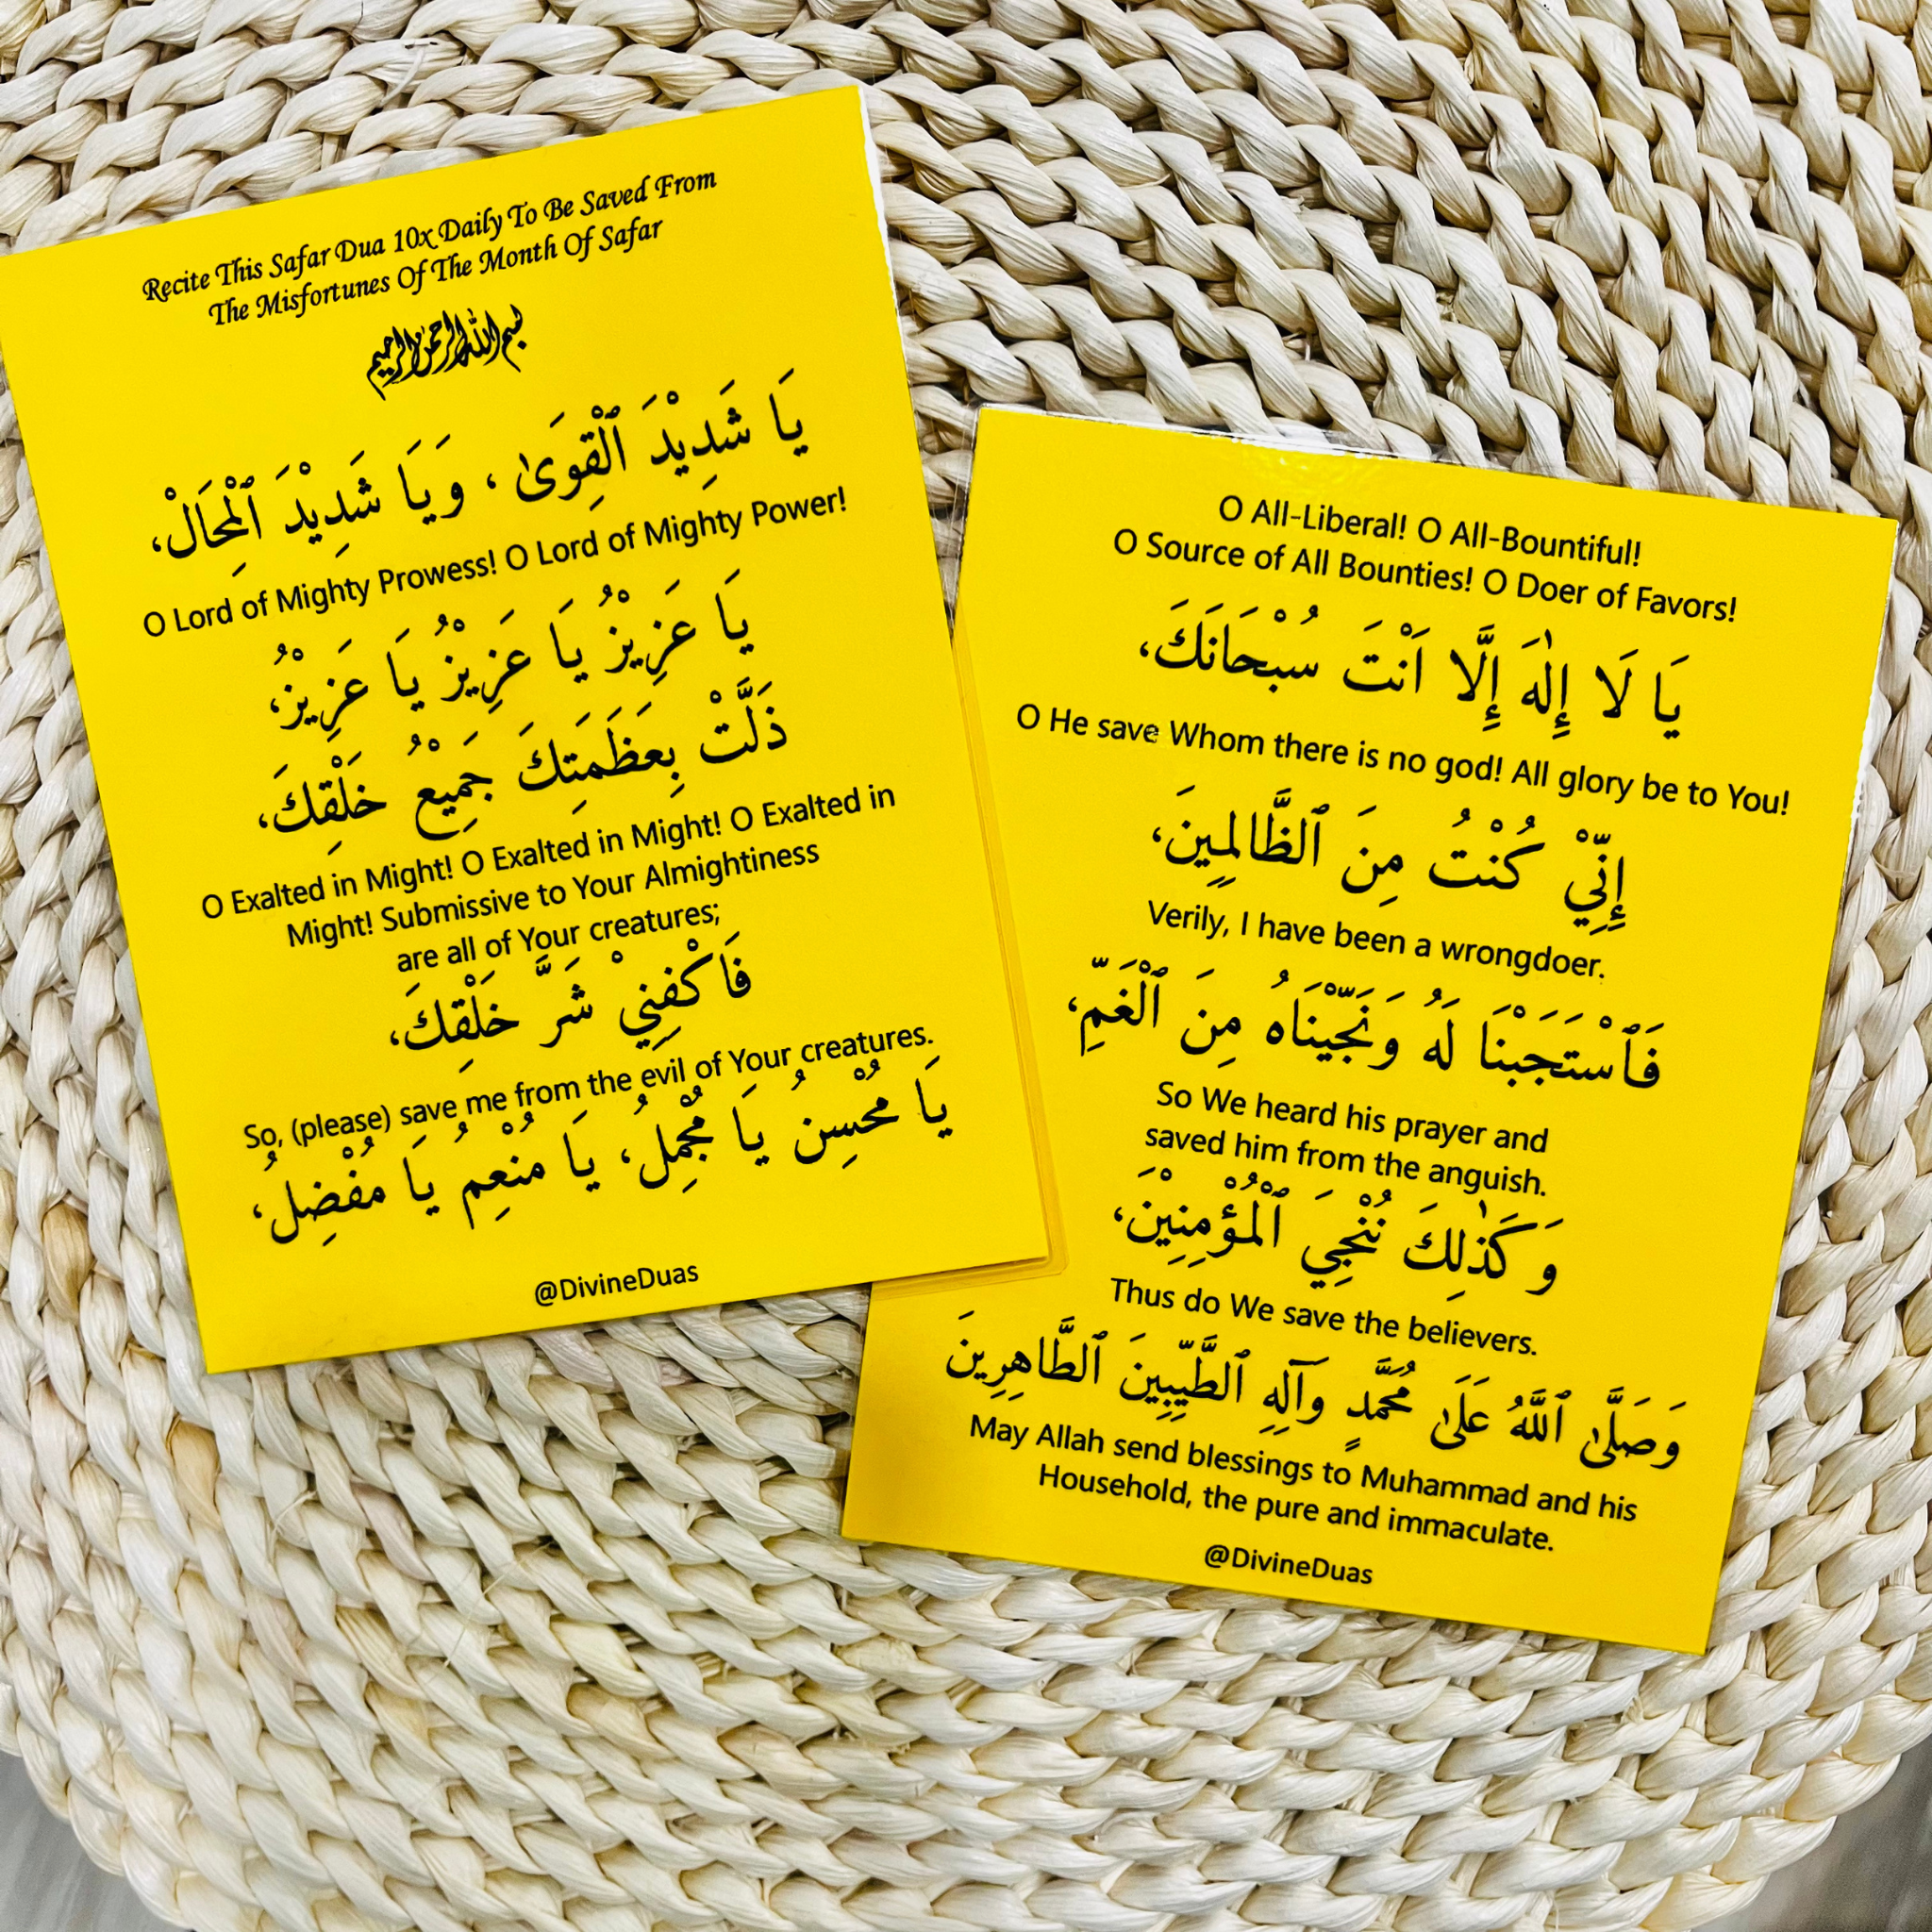 Recite This Safar Dua 10x Daily To Be Saved From
The Misfortunes Of The Month Of Safar
بسم الله الرحمن الرحيم
يَا شَدِيْدَ ٱلْقِوَىٰ ، وَيَا شَدِيْدَ ٱلْمِحَالْ،
O Lord of Mighty Prowess! O Lord of Mighty Power!
يَا عَزِيْزُ يَا عَزِيْزُ يَا عَزِيْزُ،
ذَلَّتْ بِعَظَمَتِكَ جَمِيْعُ خَلْقِكَ،
O Exalted in Might! O Exalted in Might! O Exalted in
Might! Submissive to Your Almightiness
are all of Your creatures;
فَاَكْفِنِيْ شَرَّ خَلْقِكَ،
So, (please) save me from the evil of Your creatures.
يَا مُحْسِنُ يَا مُجْمِلُ، يَا مُنْعِمُ يَا مُفْضِلُ،
@DivineDuas
O All-Liberal! O All-Bountiful!
O Source of All Bounties! O Doer of Favors!
يَا لَا إِلٰهَ إِلَّا اَنْتَ سُبْحَانَكَ،
O He save Whom there is no god! All glory be to You!
إِنِّيْ كُنْتُ مِنَ ٱلظَّالِمِينَ،
Verily, I have been a wrongdoer.
فَٱسْتَجَبْنَا لَهُ وَنَجَّيْنَاهُ مِنَ ٱلْغَمِّ،
So We heard his prayer and
saved him from the anguish.
وَكَذٰلِكَ نُنْجِيَ ٱلْمُؤْمِنِيْنَ،
Thus do We save the believers.
وَصَلَّىٰ ٱللَّهُ عَلَىٰ مُحَمَّدٍ وَآلِهِ ٱلطَّيِّبِينَ ٱلطَّاهِرِينَ
May Allah send blessings to Muhammad and his
Household, the pure and immaculate.
@DivineDuas